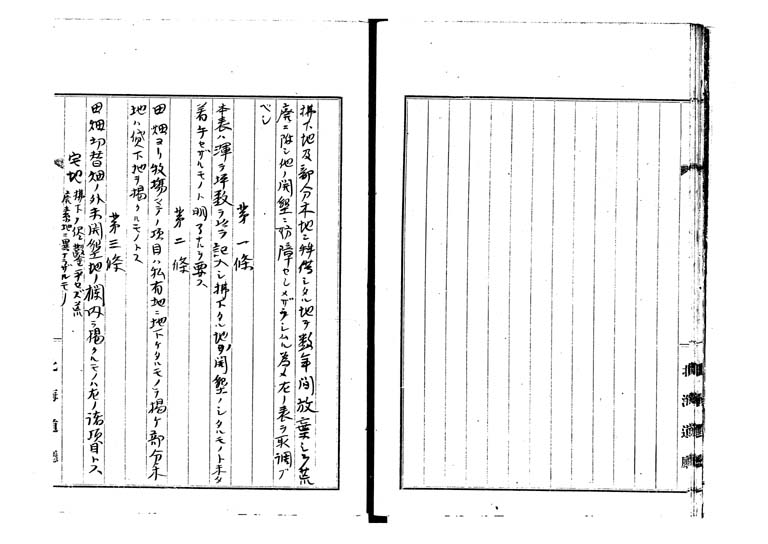 拂下地及部分木地ニ特借シタル地ヲ数年間放棄シテ荒
廃ニ附シ他ノ開墾ニ妨障セシメザラシムル為メ左ノ表ヲ取調ブ
ベシ
第一條
本表ハ渾テ坪数ヲ以テ記入シ拂下タル地ヨリ開墾ノシタルモノト未タ
着手セザルモノト明了タルヲ要ス
第二條
田畑ヨリ牧場マデノ項目ハ私有地ニ地下ケタルモノヲ揚ケ部分木
地ハ貸下地ヲ揚クルモノトス
第三條
田畑切替畑ノ外未開墾地ノ欄内ヲ揚クルモノハ左ノ諸項目トス
宅地 拂下タ侭シ セズ荒
廃素地ニ異ナラザルモノ
北海道廳
北海道廳